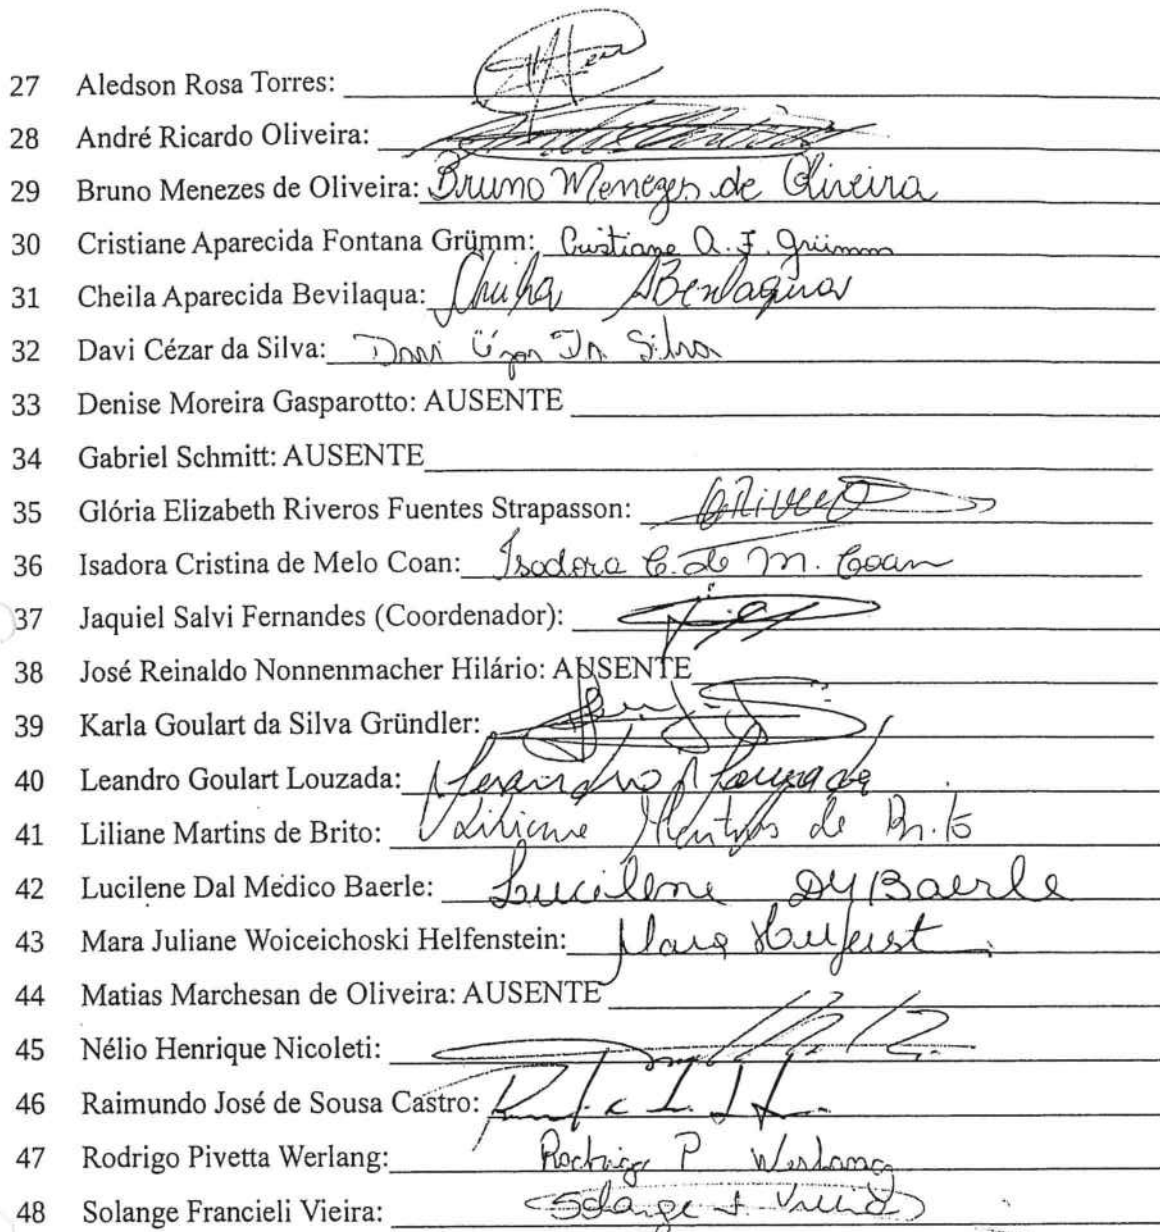 27 Aledson Rosa Torres:
28 André Ricardo Oliveira:
29 Bruno Menezes de Oliveira: Bruno Menezes de Oliveira
30 Cristiane Aparecida Fontana Grümm: Cristiane A. F. Grümm
31 Cheila Aparecida Bevilaqua: Cheila A Bevilaqua
32 Davi Cézar da Silva: Davi Cézar Da Silva
33 Denise Moreira Gasparotto: AUSENTE
34 Gabriel Schmitt: AUSENTE
35 Glória Elizabeth Riveros Fuentes Strapasson: GRivero
36 Isadora Cristina de Melo Coan: Isadora C. de M. Coan
37 Jaquiel Salvi Fernandes (Coordenador):
38 José Reinaldo Nonnenmacher Hilário: AUSENTE
39 Karla Goulart da Silva Gründler:
40 Leandro Goulart Louzada: Leandro Louzada
41 Liliane Martins de Brito: Liliane Martins de Brito
42 Lucilene Dal Medico Baerle: Lucilene DM Baerle
43 Mara Juliane Woiceichoski Helfenstein: Mara Helfenst
44 Matias Marchesan de Oliveira: AUSENTE
45 Nélio Henrique Nicoleti:
46 Raimundo José de Sousa Castro:
47 Rodrigo Pivetta Werlang: Rodrigo P Werlang
48 Solange Francieli Vieira: Solange F. Vieira